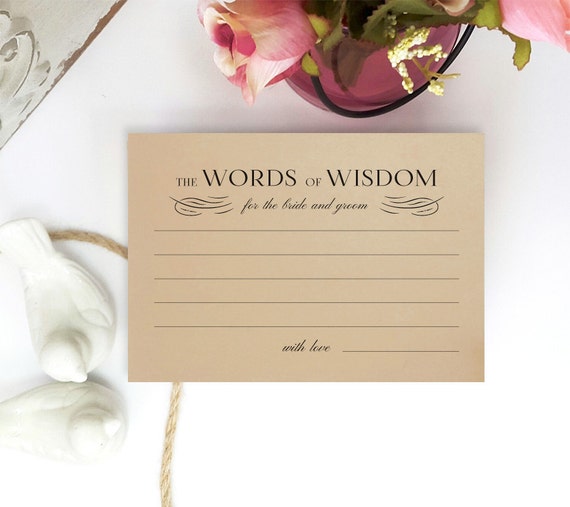 THE WORDS OF WISDOM
for the bride and groom
with love